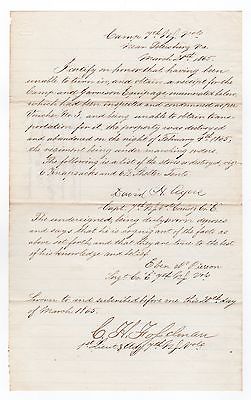 Camp 7th Regt
Near Petersburg Va.
March 30th 1865.
I certify on honor that having been
unable to turn in, and obtain a receipt for the
Camp and Garrison Equipage enumerated below,
which had been inspected and condemned as per
Voucher No 3, and being unable to obtain trans-
portation for it, the property was destroyed
and abandoned on the morning of February 5th 1865,
the regiment being under marching orders.
The following is a list of the stores destroyed, viz:
6 Knapsacks and 62 Shelter Tents
David H.
Capt 7th Regt Comdg Co. E
The undersigned being duly sworn deposes
and says that he is cognizant of the facts as
above set forth, and that they are true to the best
of his knowledge and belief.
Eben Pierson
Sergt Co. E 7th Regt
Sworn to and subscribed before me this 30th day
of March 1865.
C. H.
1st Lieut & 7th Regt